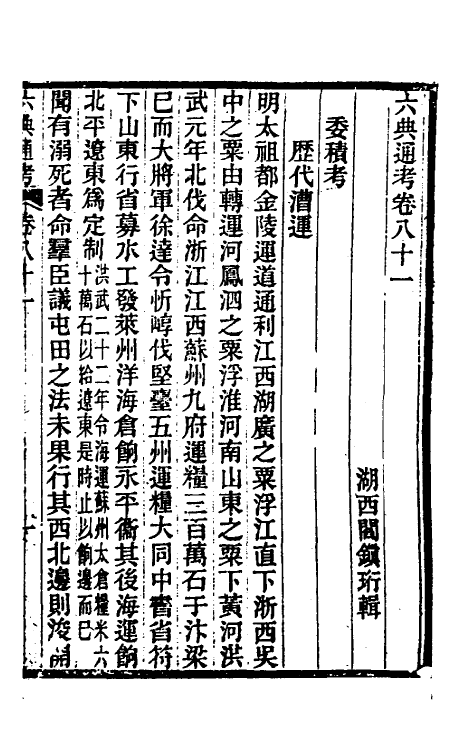 六典通考卷八十一
湖西閻鎮珩輯
委積考
歷代漕運
明太祖都金陵運道通利江西湖廣之粟浮江直下浙西吳
中之粟由轉運河鳳泗之粟浮淮河南山東之粟下黃河洪
武元年北伐命浙江江西蘇州九府運糧三百萬石于汴梁
巳而大將軍徐達令忻崞代堅臺五州運糧大同中書省符
下山東行省募水工發萊州洋海倉餉永平衞其後海運餉
北平遼東爲定制洪武二十二年令海運蘇州太倉糧米六
十萬石以給遼東是時止以餉邊而巳
聞有溺死者命羣臣議屯田之法未果行其西北邊則浚開
六典通考 卷八十一